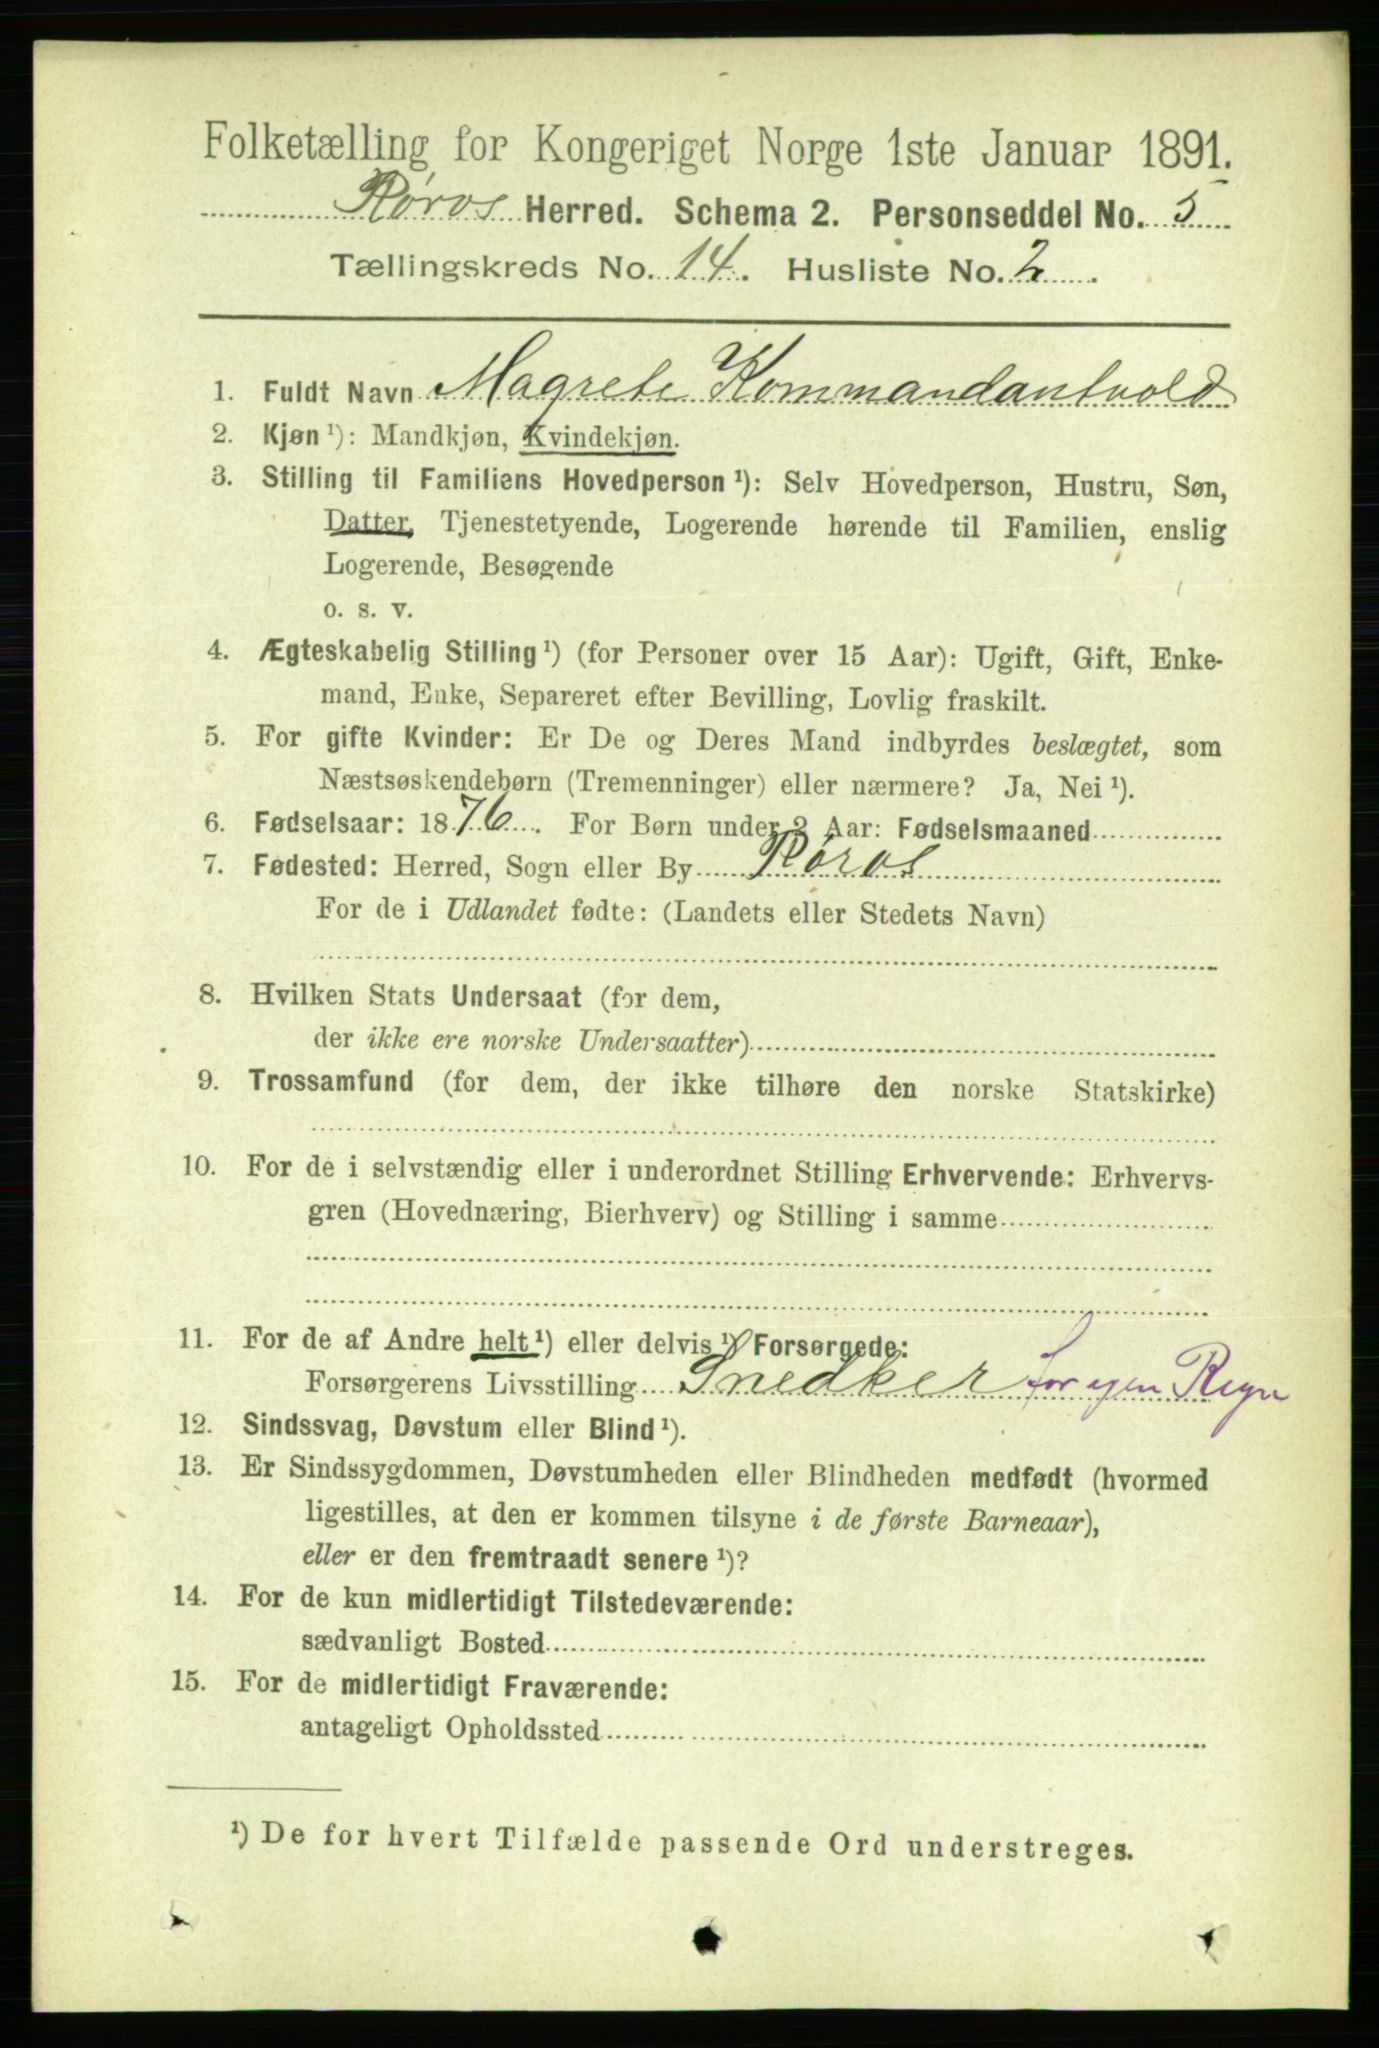 Folketælling for Kongeriget Norge 1ste Januar 1891.
Røros Herred. Schema 2. Personseddel No. 5
Tællingskreds No. 14. Husliste No. 2.
1. Fuldt Navn Magrete Kommandantvold
2. Kjøn ¹): Mandkjøn, Kvindekjøn.
3. Stilling til Familiens Hovedperson ¹): Selv Hovedperson, Hustru, Søn,
Datter, Tjenestetyende, Logerende hørende til Familien, enslig
Logerende, Besøgende
o. s. v.
4. Ægteskabelig Stilling ¹) (for Personer over 15 Aar): Ugift, Gift, Enke-
mand, Enke, Separeret efter Bevilling, Lovlig fraskilt.
5. For gifte Kvinder: Er De og Deres Mand indbyrdes beslægtet, som
Næstsøskendebørn (Tremenninger) eller nærmere? Ja, Nei ¹).
6. Fødselsaar: 1876. For Børn under 2 Aar: Fødselsmaaned
7. Fødested: Herred, Sogn eller By Røros
For de i Udlandet fødte: (Landets eller Stedets Navn)
8. Hvilken Stats Undersaat (for dem,
der ikke ere norske Undersaatter)
9. Trossamfund (for dem, der ikke tilhøre den norske Statskirke)
10. For de i selvstændig eller i underordnet Stilling Erhvervende: Erhvervs-
gren (Hovednæring, Bierhverv) og Stilling i samme
11. For de af Andre helt ¹) eller delvis ¹) Forsørgede:
Forsørgerens Livsstilling Snedker for egen Regn
12. Sindssvag, Døvstum eller Blind ¹).
13. Er Sindssygdommen, Døvstumheden eller Blindheden medfødt (hvormed
ligestilles, at den er kommen tilsyne i de første Barneaar),
eller er den fremtraadt senere ¹)?
14. For de kun midlertidigt Tilstedeværende:
sædvanligt Bosted
15. For de midlertidigt Fraværende:
antageligt Opholdssted
¹) De for hvert Tilfælde passende Ord understreges.